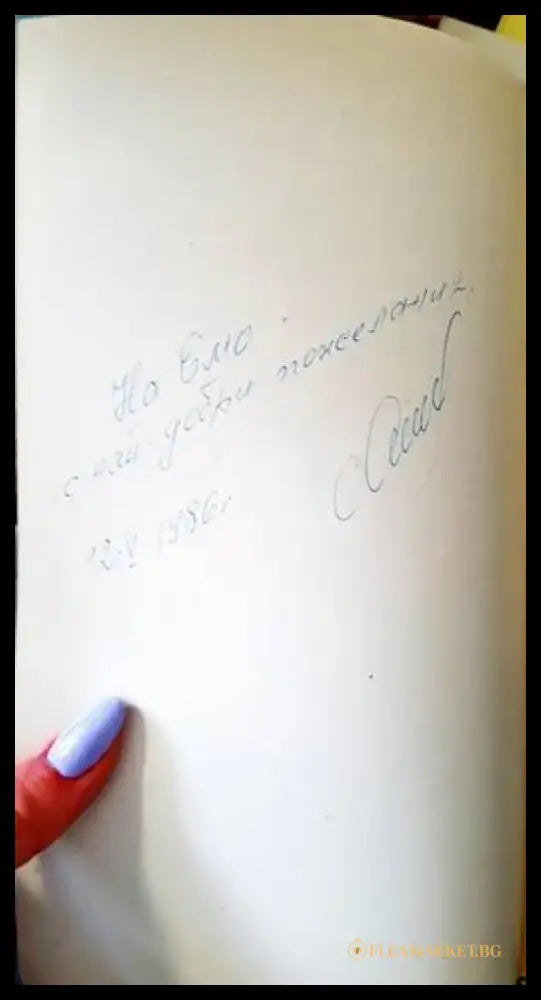 На Ема
с най-добри пожелания.
12.V 1986г
FLEAMARKET.BG